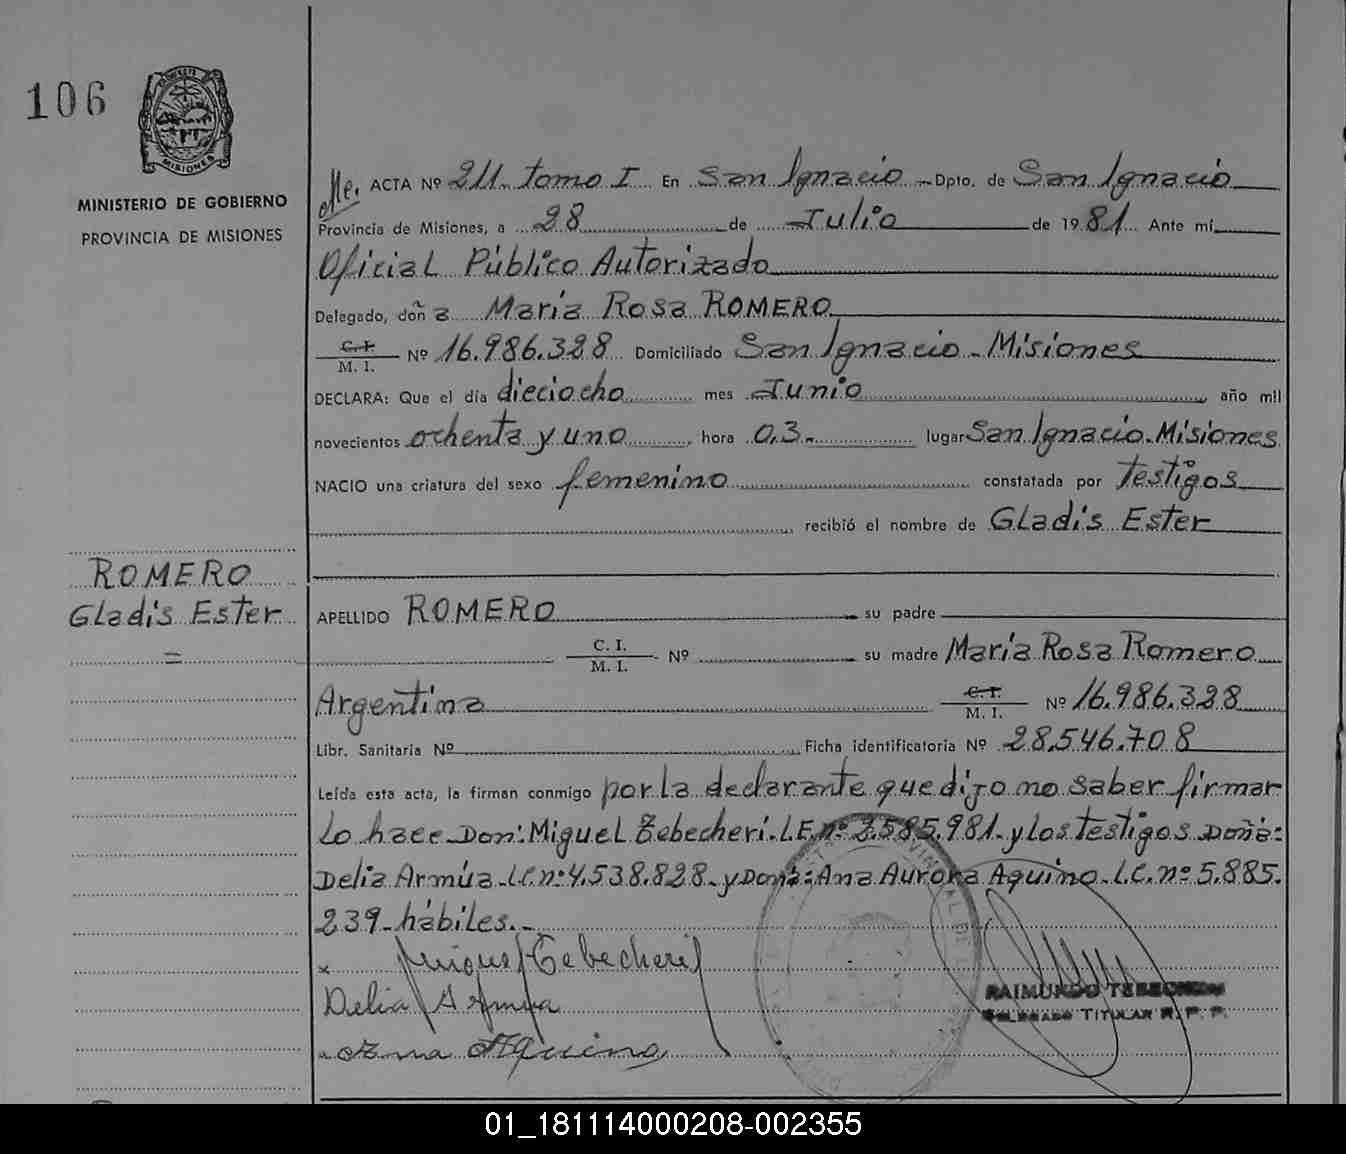 106
MISIONES
MINISTERIO DE GOBIERNO
PROVINCIA DE MISIONES
ACTA Nº 211. Tomo I En San Ignacio Dpto. de San Ignacio
Provincia de Misiones, a 28 de Julio de 1981 Ante mí
Oficial Público Autorizado
Delegado, doña María Rosa ROMERO
C. I.
M. I. Nº 16.986.328 Domiciliado San Ignacio - Misiones
DECLARA: Que el día dieciocho mes Junio año mil
novecientos ochenta y uno, hora 03.- lugar San Ignacio - Misiones
NACIO una criatura del sexo femenino constatada por testigos
recibió el nombre de Gladis Ester
ROMERO
Gladis Ester
=
APELLIDO ROMERO su padre
C. I.
M. I. Nº su madre María Rosa Romero
Argentina C. I.
M. I. Nº 16.986.328
Libr. Sanitaria Nº Ficha identificatoria Nº 28.546.708
Leída esta acta, la firman conmigo por la declarante que dijo no saber firmar
lo hace Don: Miguel Bebecheri. L.E. nº 3.585.981. y los testigos Doña:
Delia Armúa. L.C. nº 4.538.828. y Doña: Ana Aurora Aquino. L.C. nº 5.885.
239 - hábiles.-
x Miguel Bebecheri
Delia Armua
Ana Aquino
RAIMUNDO
DELEGADO TITULAR R. P. P.
01_181114000208-002355